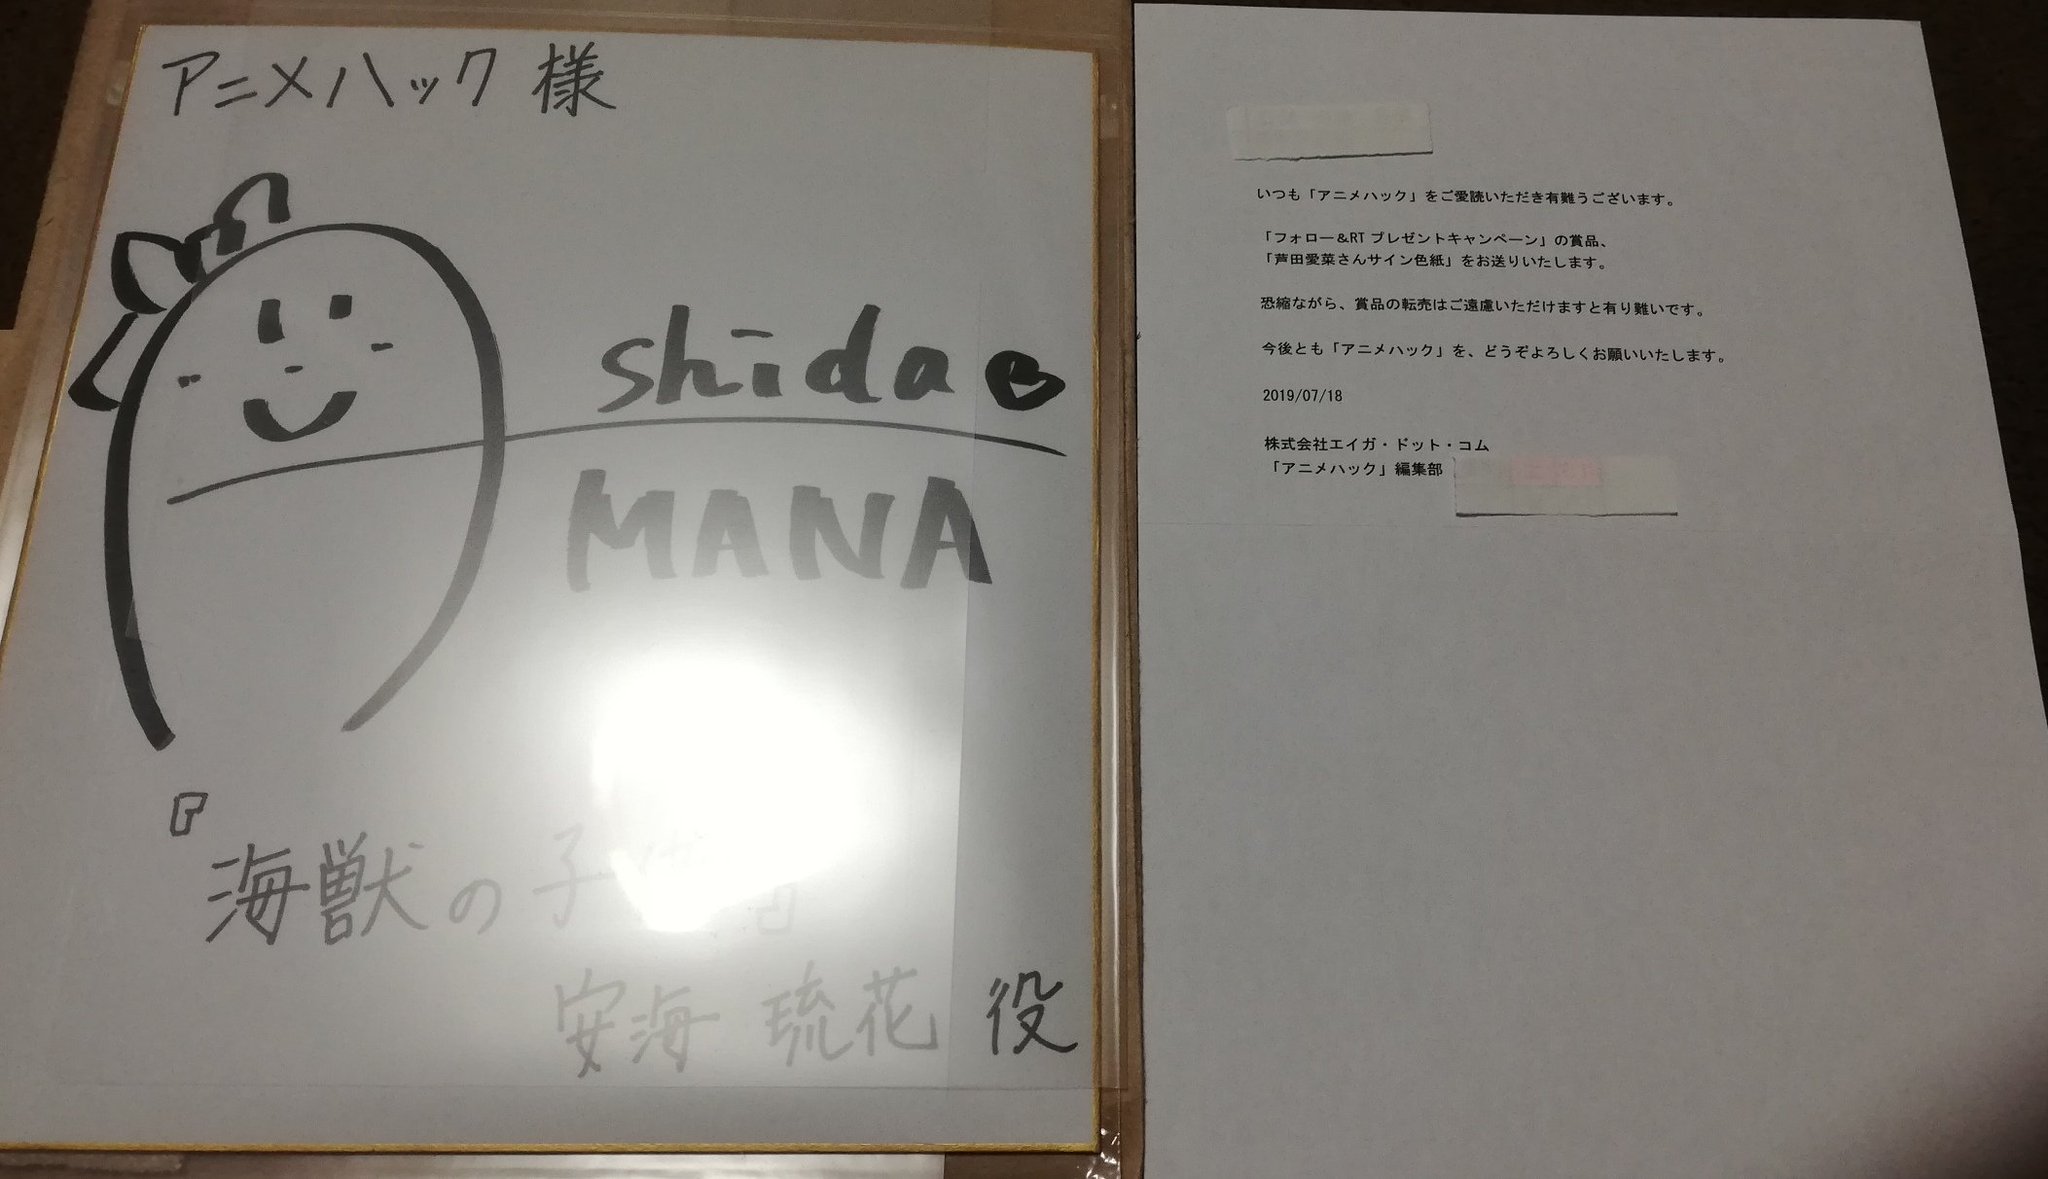 アニメハック 様
shida
MANA
『海獣の子供』
安海 琉花 役
いつも「アニメハック」をご愛読いただき有難うございます。
「フォロー&RT プレゼントキャンペーン」の賞品、
「芦田愛菜さんサイン色紙」をお送りいたします。
恐縮ながら、賞品の転売はご遠慮いただけますと有り難いです。
今後とも「アニメハック」を、どうぞよろしくお願いいたします。
2019/07/18
株式会社エイガ・ドット・コム
「アニメハック」編集部